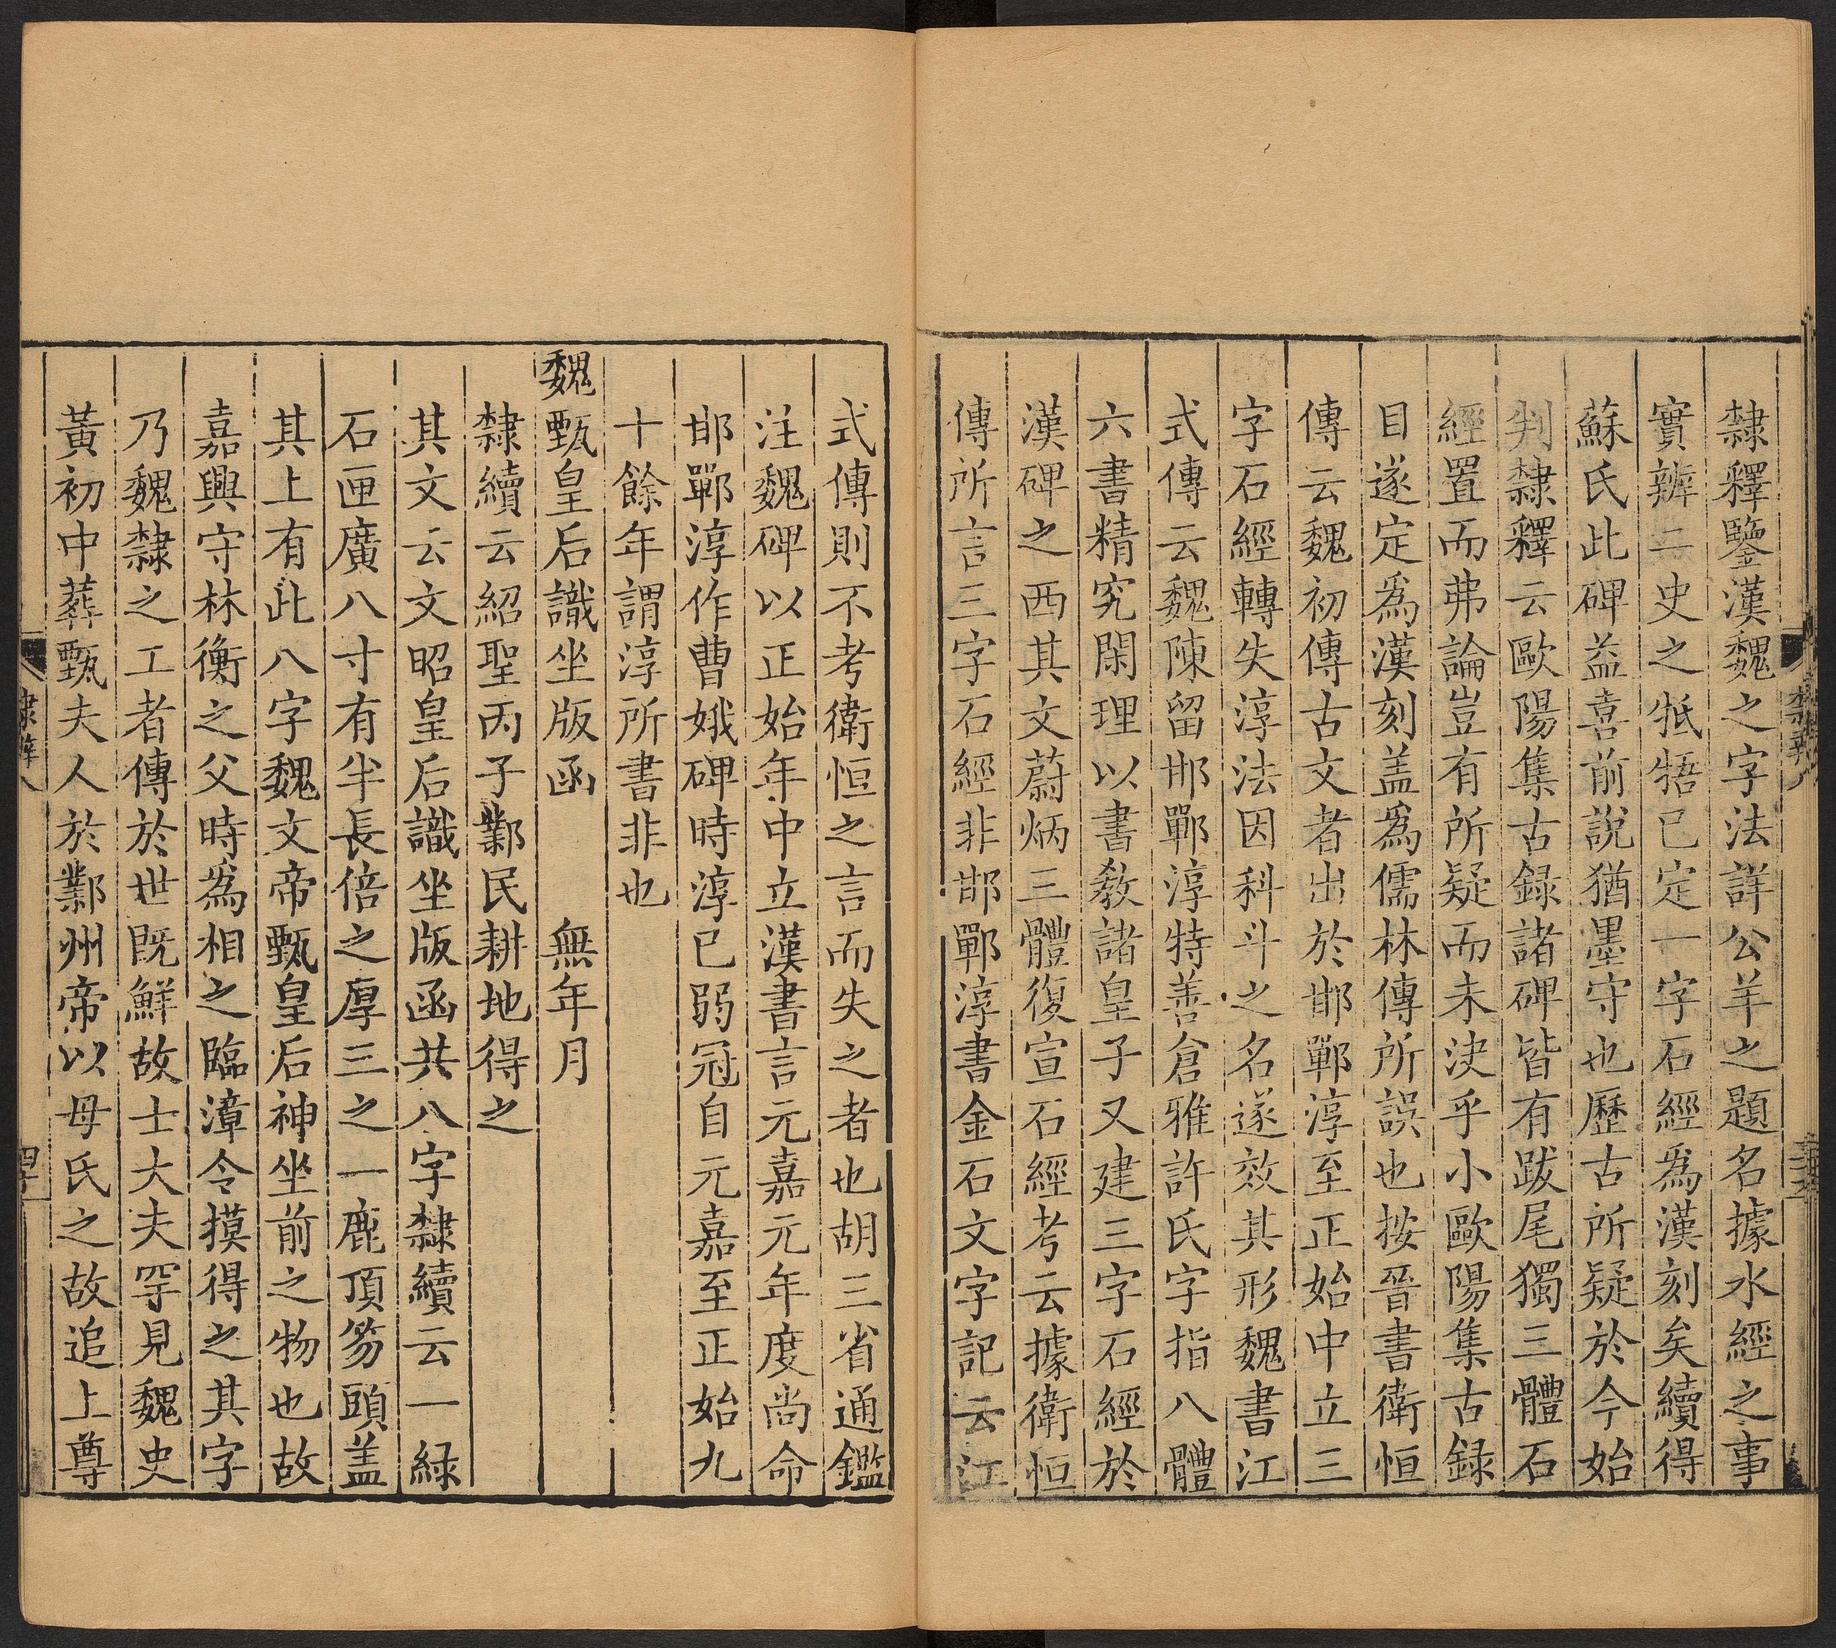 隸釋鑒漢魏之字法詳公羊之題名據水經之事
實辨二史之牴牾已定一字石經爲漢刻矣續得
蘇氏此碑益喜前說猶墨守也歷古所疑於今始
判隸釋云歐陽集古録諸碑皆有跋尾獨三體石
經置而弗論豈有所疑而未決乎小歐陽集古録
目遂定爲漢刻盖爲儒林傳所誤也按晉書衛恒
傳云魏初傳古文者出於邯鄲淳至正始中立三
字石經轉失淳法因科斗之名遂效其形魏書江
式傳云魏陳留邯鄲淳特善倉雅許氏字指八體
六書精究閑理以書教諸皇子又建三字石經於
漢碑之西其文蔚炳三體復宣石經考云據衛恒
傳所言三字石經非邯鄲淳書金石文字記云江
式傳則不考衛恒之言而失之者也胡三省通鑑
注魏碑以正始年中立漢書言元嘉元年度尚命
邯鄲淳作曹娥碑時淳已弱冠自元嘉至正始九
十餘年謂淳所書非也
魏甄皇后識坐版函 無年月
隸續云紹聖丙子鄴民耕地得之
其文云文昭皇后識坐版函共八字隸續云一緑
石匣廣八寸有半長倍之厚三之一鹿頂笏頭盖
其上有此八字魏文帝甄皇后神坐前之物也故
嘉興守林衡之父時爲相之臨漳令摸得之其字
乃魏隸之工者傳於世既鮮故士大夫罕見魏史
黃初中葬甄夫人於鄴州帝以母氏之故追上尊
隸辨八